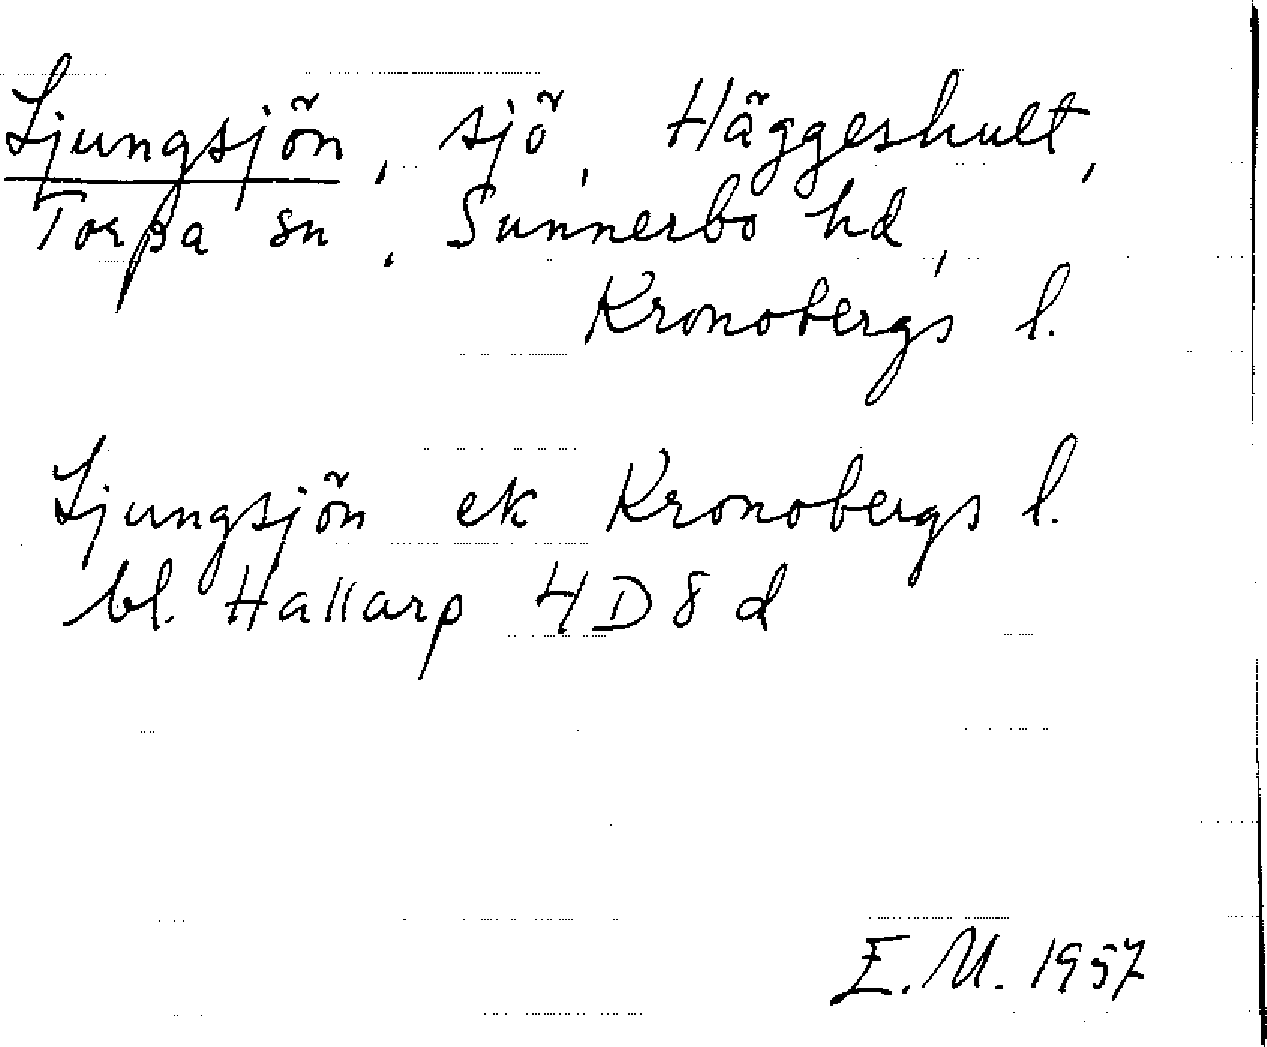 Ljungsjön, sjö, Häggeshult,
Torpa sn, Sunnerbo hd,
Kronobergs l.
Ljungsjön ek Kronobergs l.
bl. Hallarp 4D8d
E.M. 1957